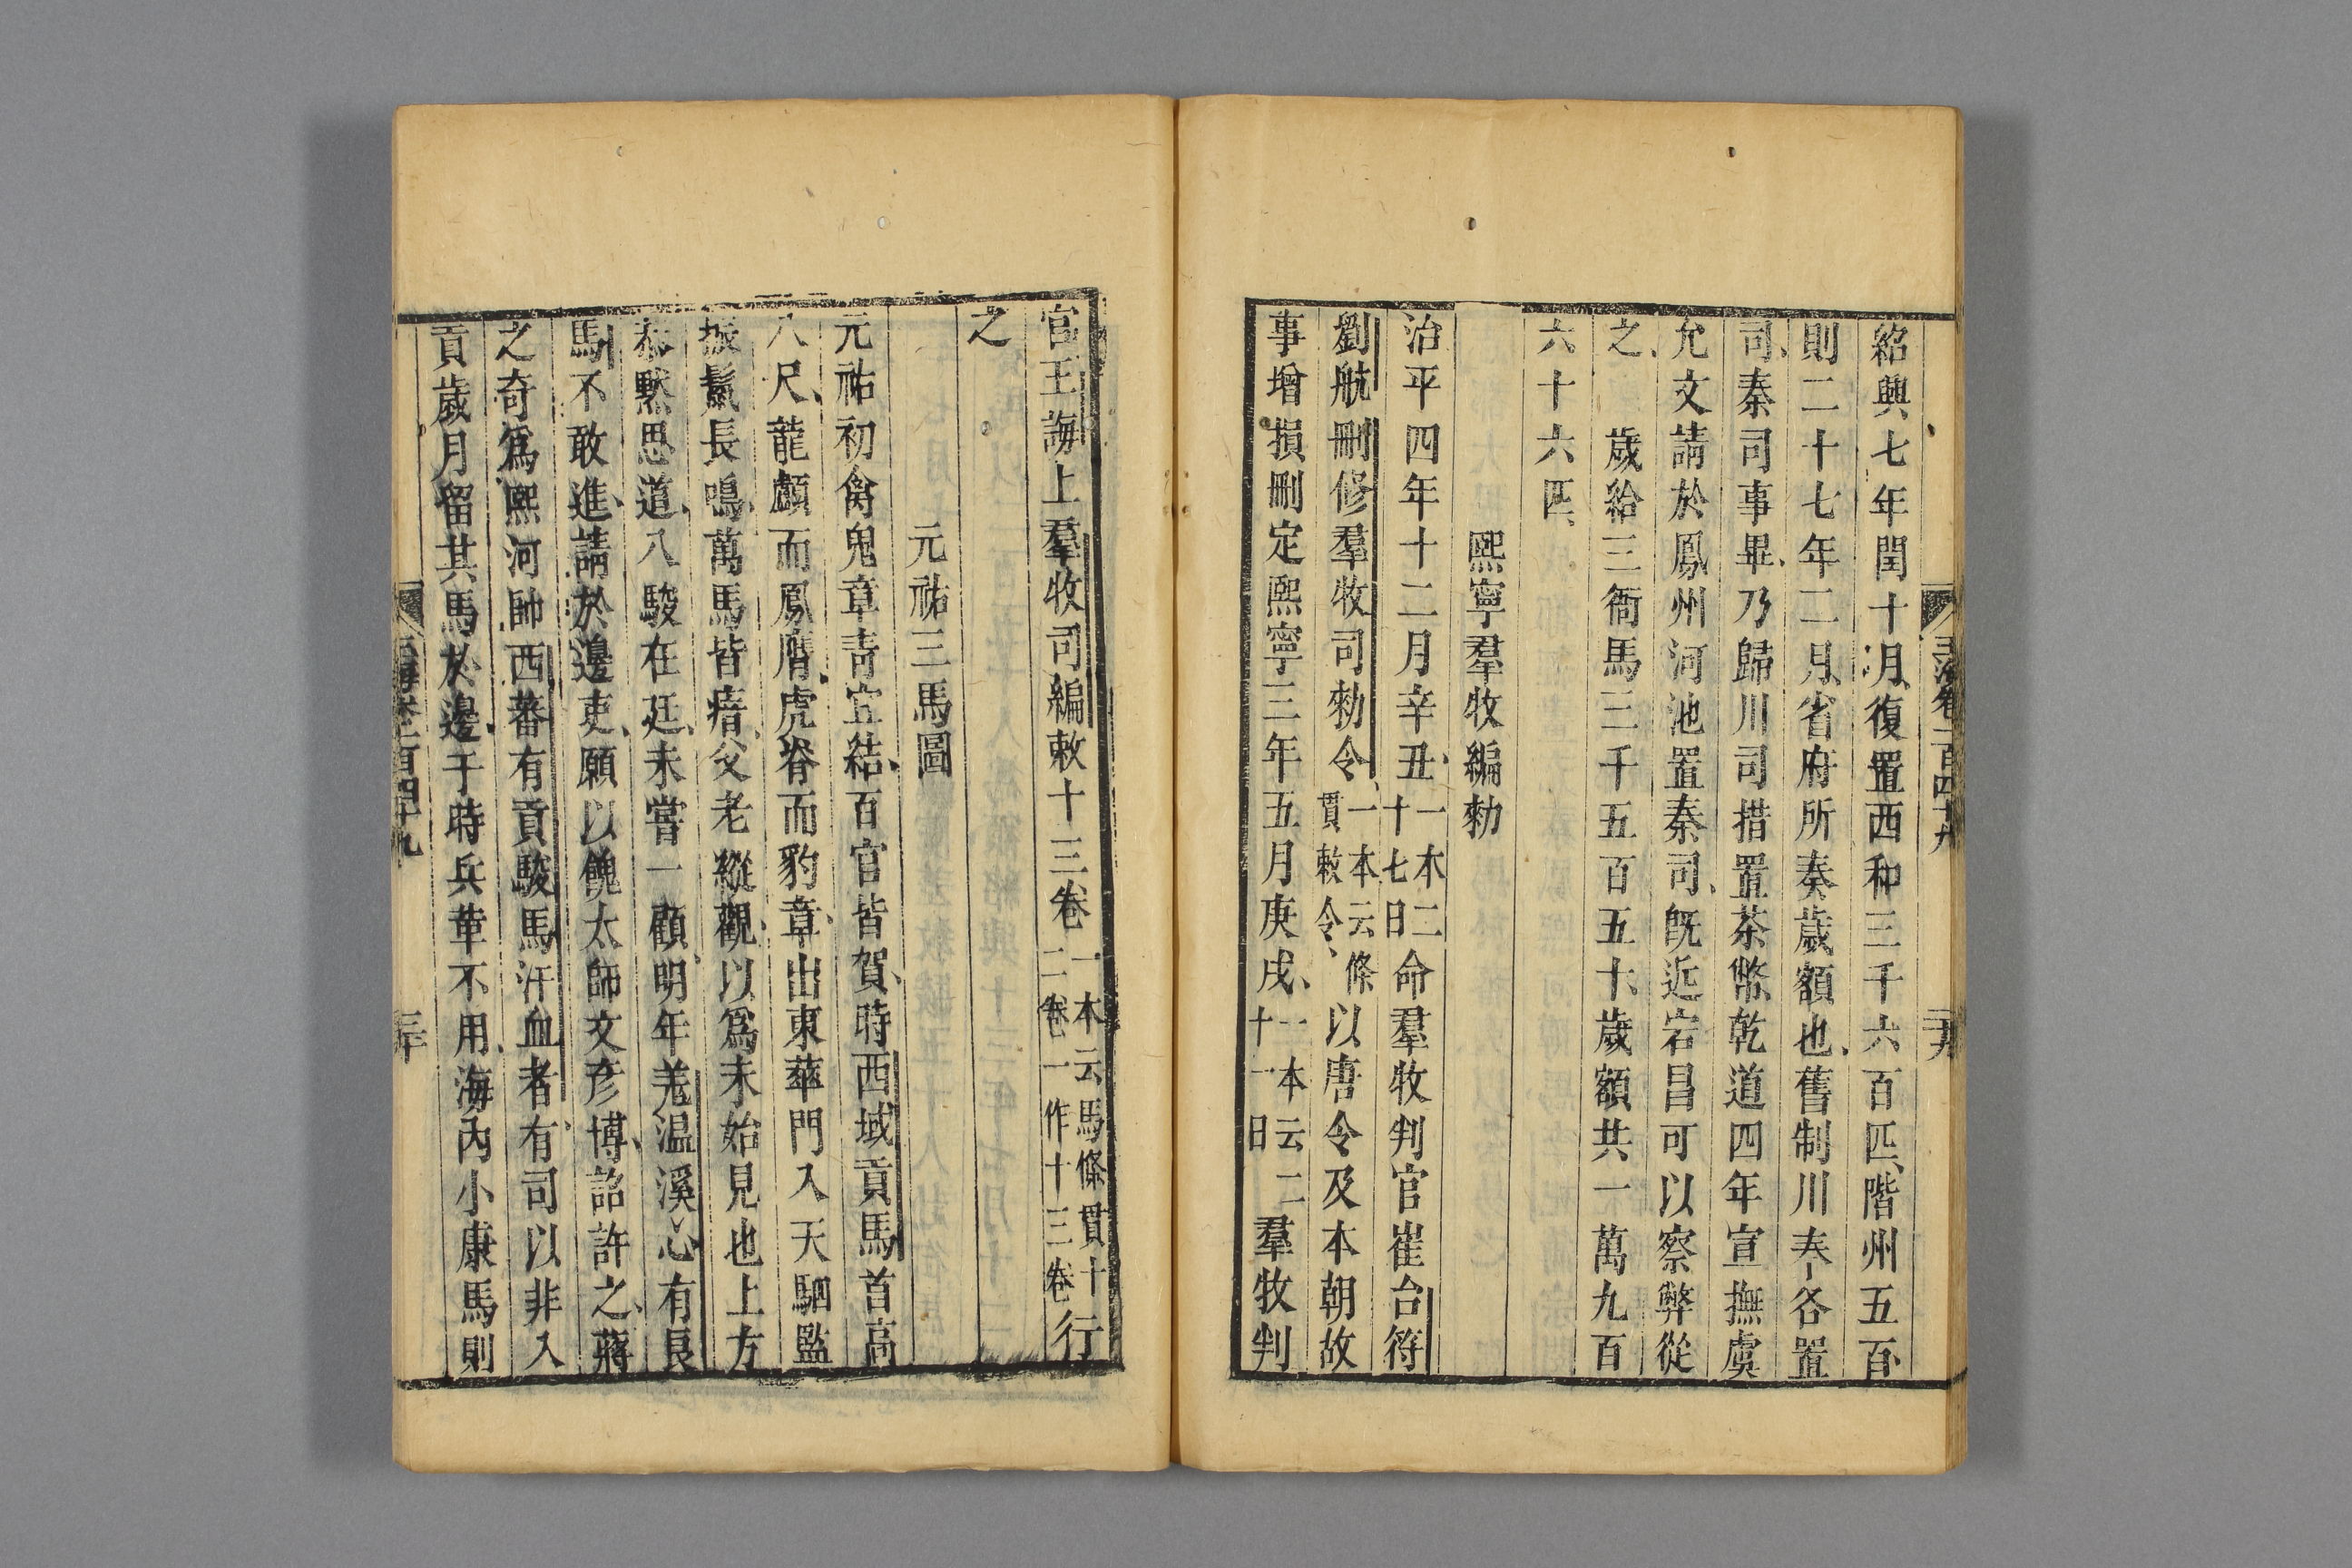 玉海卷一百四十九
紹興七年閏十月復置西和三千六百匹階州五百
則二十七年二月省府所奏歲額也舊制川秦各置
司秦司事畢乃歸川司措置茶幣乾道四年宣撫虞
允文請於鳳州河池置秦司既近宕昌可以察弊從
之　歲給三衙馬三千五百五十歲額共一萬九百
六十六匹
熙寧羣牧編勑
治平四年十二月辛丑一本二十七日命羣牧判官崔台符
劉航刪修羣牧司勑令一本云條貫敕令以唐令及本朝故
事增損刪定熙寧三年五月庚戌一本云二十一日羣牧判
官王誨上羣牧司編敕十三卷一本云馬條貫十二卷一作十三卷行
之
元祐三馬圖
元祐初禽鬼章青宜結百官皆賀時西域貢馬首高
八尺龍顱而鳳膺虎脊而豹章出東華門入天駟監
振鬣長鳴萬馬皆瘖父老縱觀以爲未始見也上方
恭默思道八駿在廷未嘗一顧明年羌温溪心有良
馬不敢進請於邊吏願以餽太師文彦博詔許之蔣
之奇爲熙河帥西蕃有貢駿馬汗血者有司以非入
貢歲月留其馬於邊于時兵革不用海内小康馬則
玉海卷一百四十九
三十